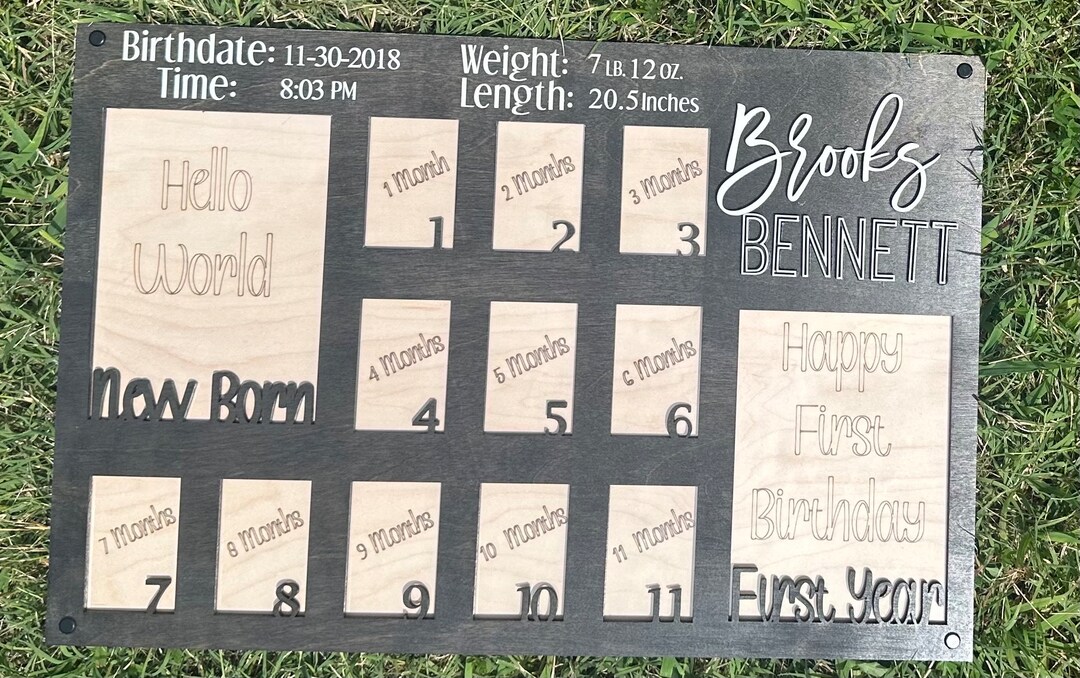 Birthdate: 11-30-2018
Time: 8:03 PM
Weight: 7 LB. 12 OZ.
Length: 20.5 Inches
Brooks
BENNETT
Hello
World
New Born
1 Month
1
2 Months
2
3 Months
3
4 Months
4
5 Months
5
6 Months
6
7 Months
7
8 Months
8
9 Months
9
10 Months
10
11 Months
11
Happy
First
Birthday
First Year